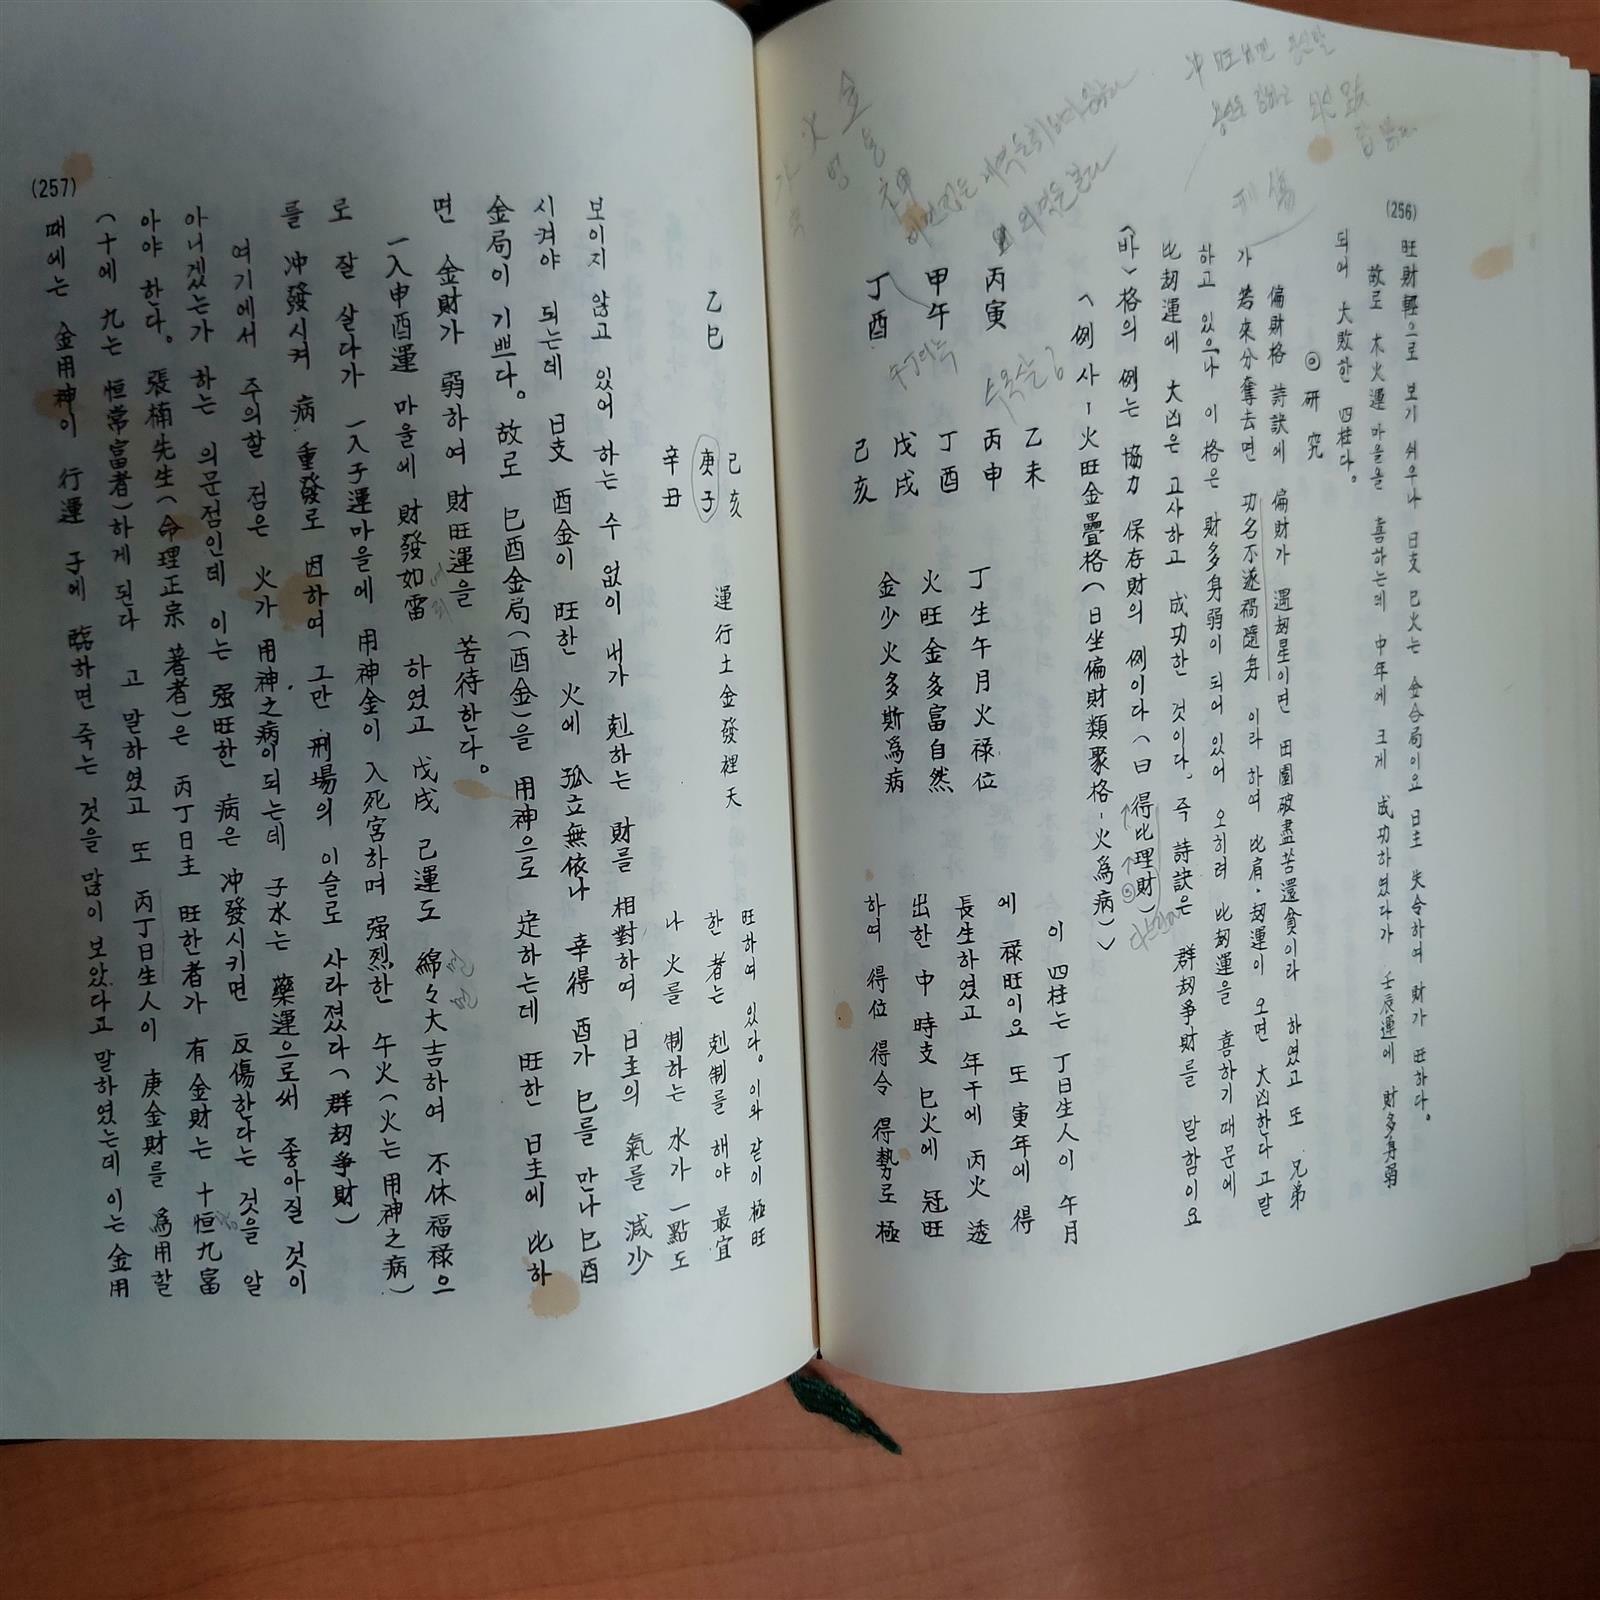 (256)
旺財輕으로 보기 쉬우나 日支 巳火는 金合局이요 日主 失令하여 財가 旺하다。
故로 木火運 마을을 喜하는데 中年에 크게 成功하였다가 壬辰運에 財多身弱
되어 大敗한 四柱다。
◎ 研 究
偏財格 詩訣에 偏財가 遇劫星이면 田園破盡苦還貧이라 하였고 또 兄弟
가 若來分奪去면 功名不遂禍隨身 이라 하여 比肩·劫運이 오면 大凶한다고 말
하고 있으나 이 格은 財多身弱이 되어 있어 오히려 比劫運을 喜하기 때문에
比劫運에 大凶은 고사하고 成功한 것이다. 즉 詩訣은 群劫爭財를 말함이요
〈바〉格의 例는 協力 保存財의 例이다(曰 得比理財)
〈例사-火旺金疊格(日坐偏財類聚格-火爲病)〉
丙寅
甲午
丁酉
乙未
丙申
丁酉
戊戌
己亥
丁生午月火祿位
火旺金多富自然
金少火多斯爲病
이 四柱는 丁日生人이 午月
에 祿旺이요 또 寅年에 得
長生하였고 年干에 丙火 透
出한 中 時支 巳火에 冠旺
하여 得位 得令 得勢로 極
刑傷
(257)
乙巳
己亥
庚子
辛丑
運行土金發裡天
旺하여 있다。 이와 같이 極旺
한 者는 剋制를 해야 最宜
나 火를 制하는 水가 一點도
보이지 않고 있어 하는 수 없이 내가 剋하는 財를 相對하여 日主의 氣를 減少
시켜야 되는데 日支 酉金이 旺한 火에 孤立無依나 幸得 酉가 巳를 만나 巳酉
金局이 기쁘다。 故로 巳酉金局(酉金)을 用神으로 定하는데 旺한 日主에 比하
면 金財가 弱하여 財旺運을 苦待한다。
一入申酉運 마을에 財發如雷 하였고 戊戌 己運도 綿々大吉하여 不休福祿으
로 잘 살다가 一入子運마을에 用神金이 入死宮하며 强烈한 午火(火는 用神之病)
를 冲發시켜 病 重發로 因하여 그만 刑場의 이슬로 사라졌다(群劫爭財)
여기에서 주의할 점은 火가 用神之病이되는데 子水는 藥運으로써 좋아질 것이
아니겠는가 하는 의문점인데 이는 强旺한 病은 冲發시키면 反傷한다는 것을 알
아야 한다。 張楠先生(命理正宗 著者)은 丙丁日主 旺한者가 有金財는 十恒九富
(十에 九는 恒常富者)하게 된다 고 말하였고 또 丙丁日生人이 庚金財를 爲用할
때에는 金用神이 行運 子에 臨하면 죽는 것을 많이 보았다고 말하였는데 이는 金用